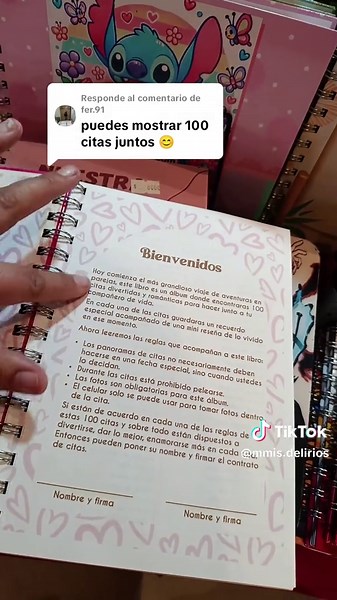 Responde al comentario de
fer.91
puedes mostrar 100
citas juntos 😊
Bienvenidos
Hoy comienza el más grandioso viaje de aventuras en
parejas, este libro es un álbum donde encontraras 100
citas divertidas y románticas para hacer junto a tu
compañero de vida.
En cada una de las citas guardaras un recuerdo
especial acompañado de una mini reseña de lo vivido
en ese momento.
Ahora leeremos las reglas que acompañan a este libro:
• Los panoramas de citas no necesariamente deben
hacerse en una fecha especial, sino cuando ustedes
lo decidan.
• Durante las citas está prohibido pelearse.
• Las fotos son obligatorias para este álbum.
• El celular solo se puede usar para tomar fotos dentro
de la cita.
Si están de acuerdo en cada una de las reglas de
estas 100 citas y sobre todo están dispuestos a
divertirse, dar lo mejor, enamorarse más en cada
Entonces pueden poner su nombre y firmar el contrato
de citas.
Nombre y firma
Nombre y firma
TikTok
@mmis.delirios